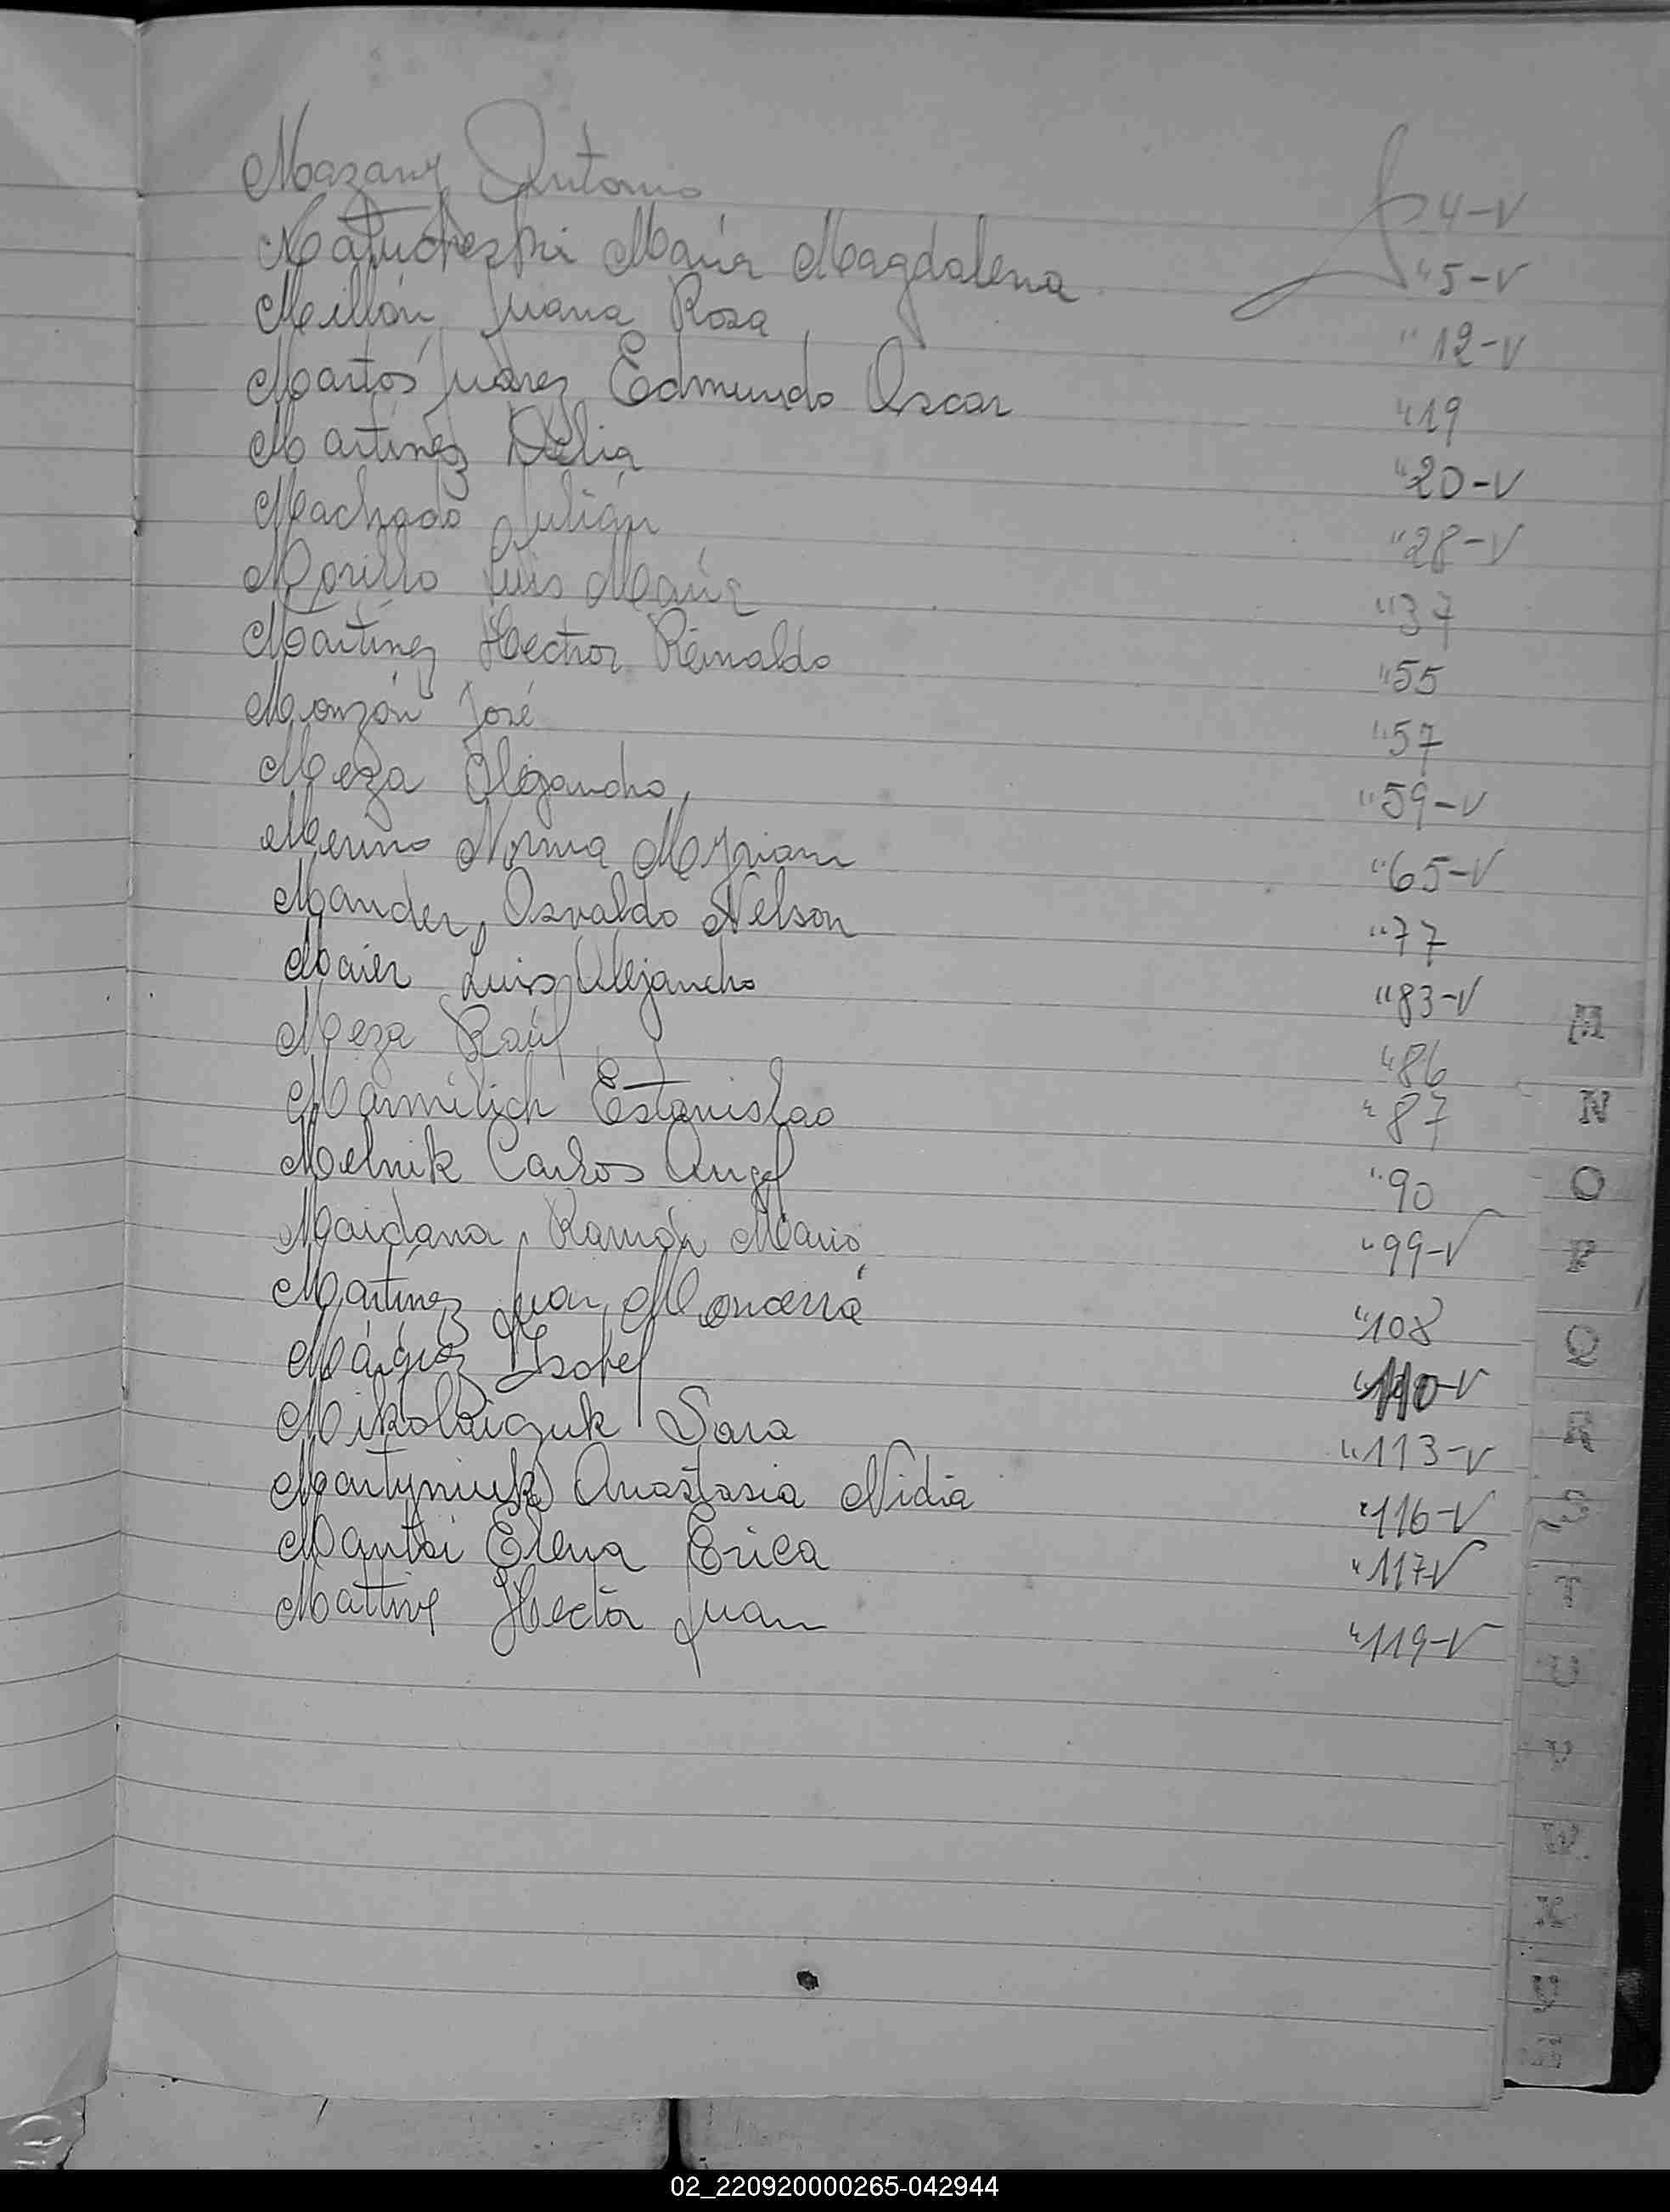 Mazany Antonio 4-V
Matucheski María Magdalena "5-V
Millán Juana Rosa "12-V
Martos Juárez Edmundo Oscar "19
Martínez Delia "20-V
Machado Julián "28-V
Morillo Luis María "37
Martínez Hector Reinaldo "55
Monzón José "57
Meza Alejandro "59-V
Merino Norma Myriam "65-V
Mander, Osvaldo Nelson "77
Maier Luis Alejandro "83-V
Meza Raúl "86
Marmilich Estanislao "87
Melnik Carlos Angel "90
Maidana, Ramón Mario "99-V
Martínez Juan "108
Márquez Isabel "110-V
Mikolaiczuk Sara "113-V
Martyniuk Anastasia Nidia "116-V
Mantai Elena Erica "117V
Hector Juan "119-V
M
N
O
P
Q
R
S
T
U
02_220920000265-042944